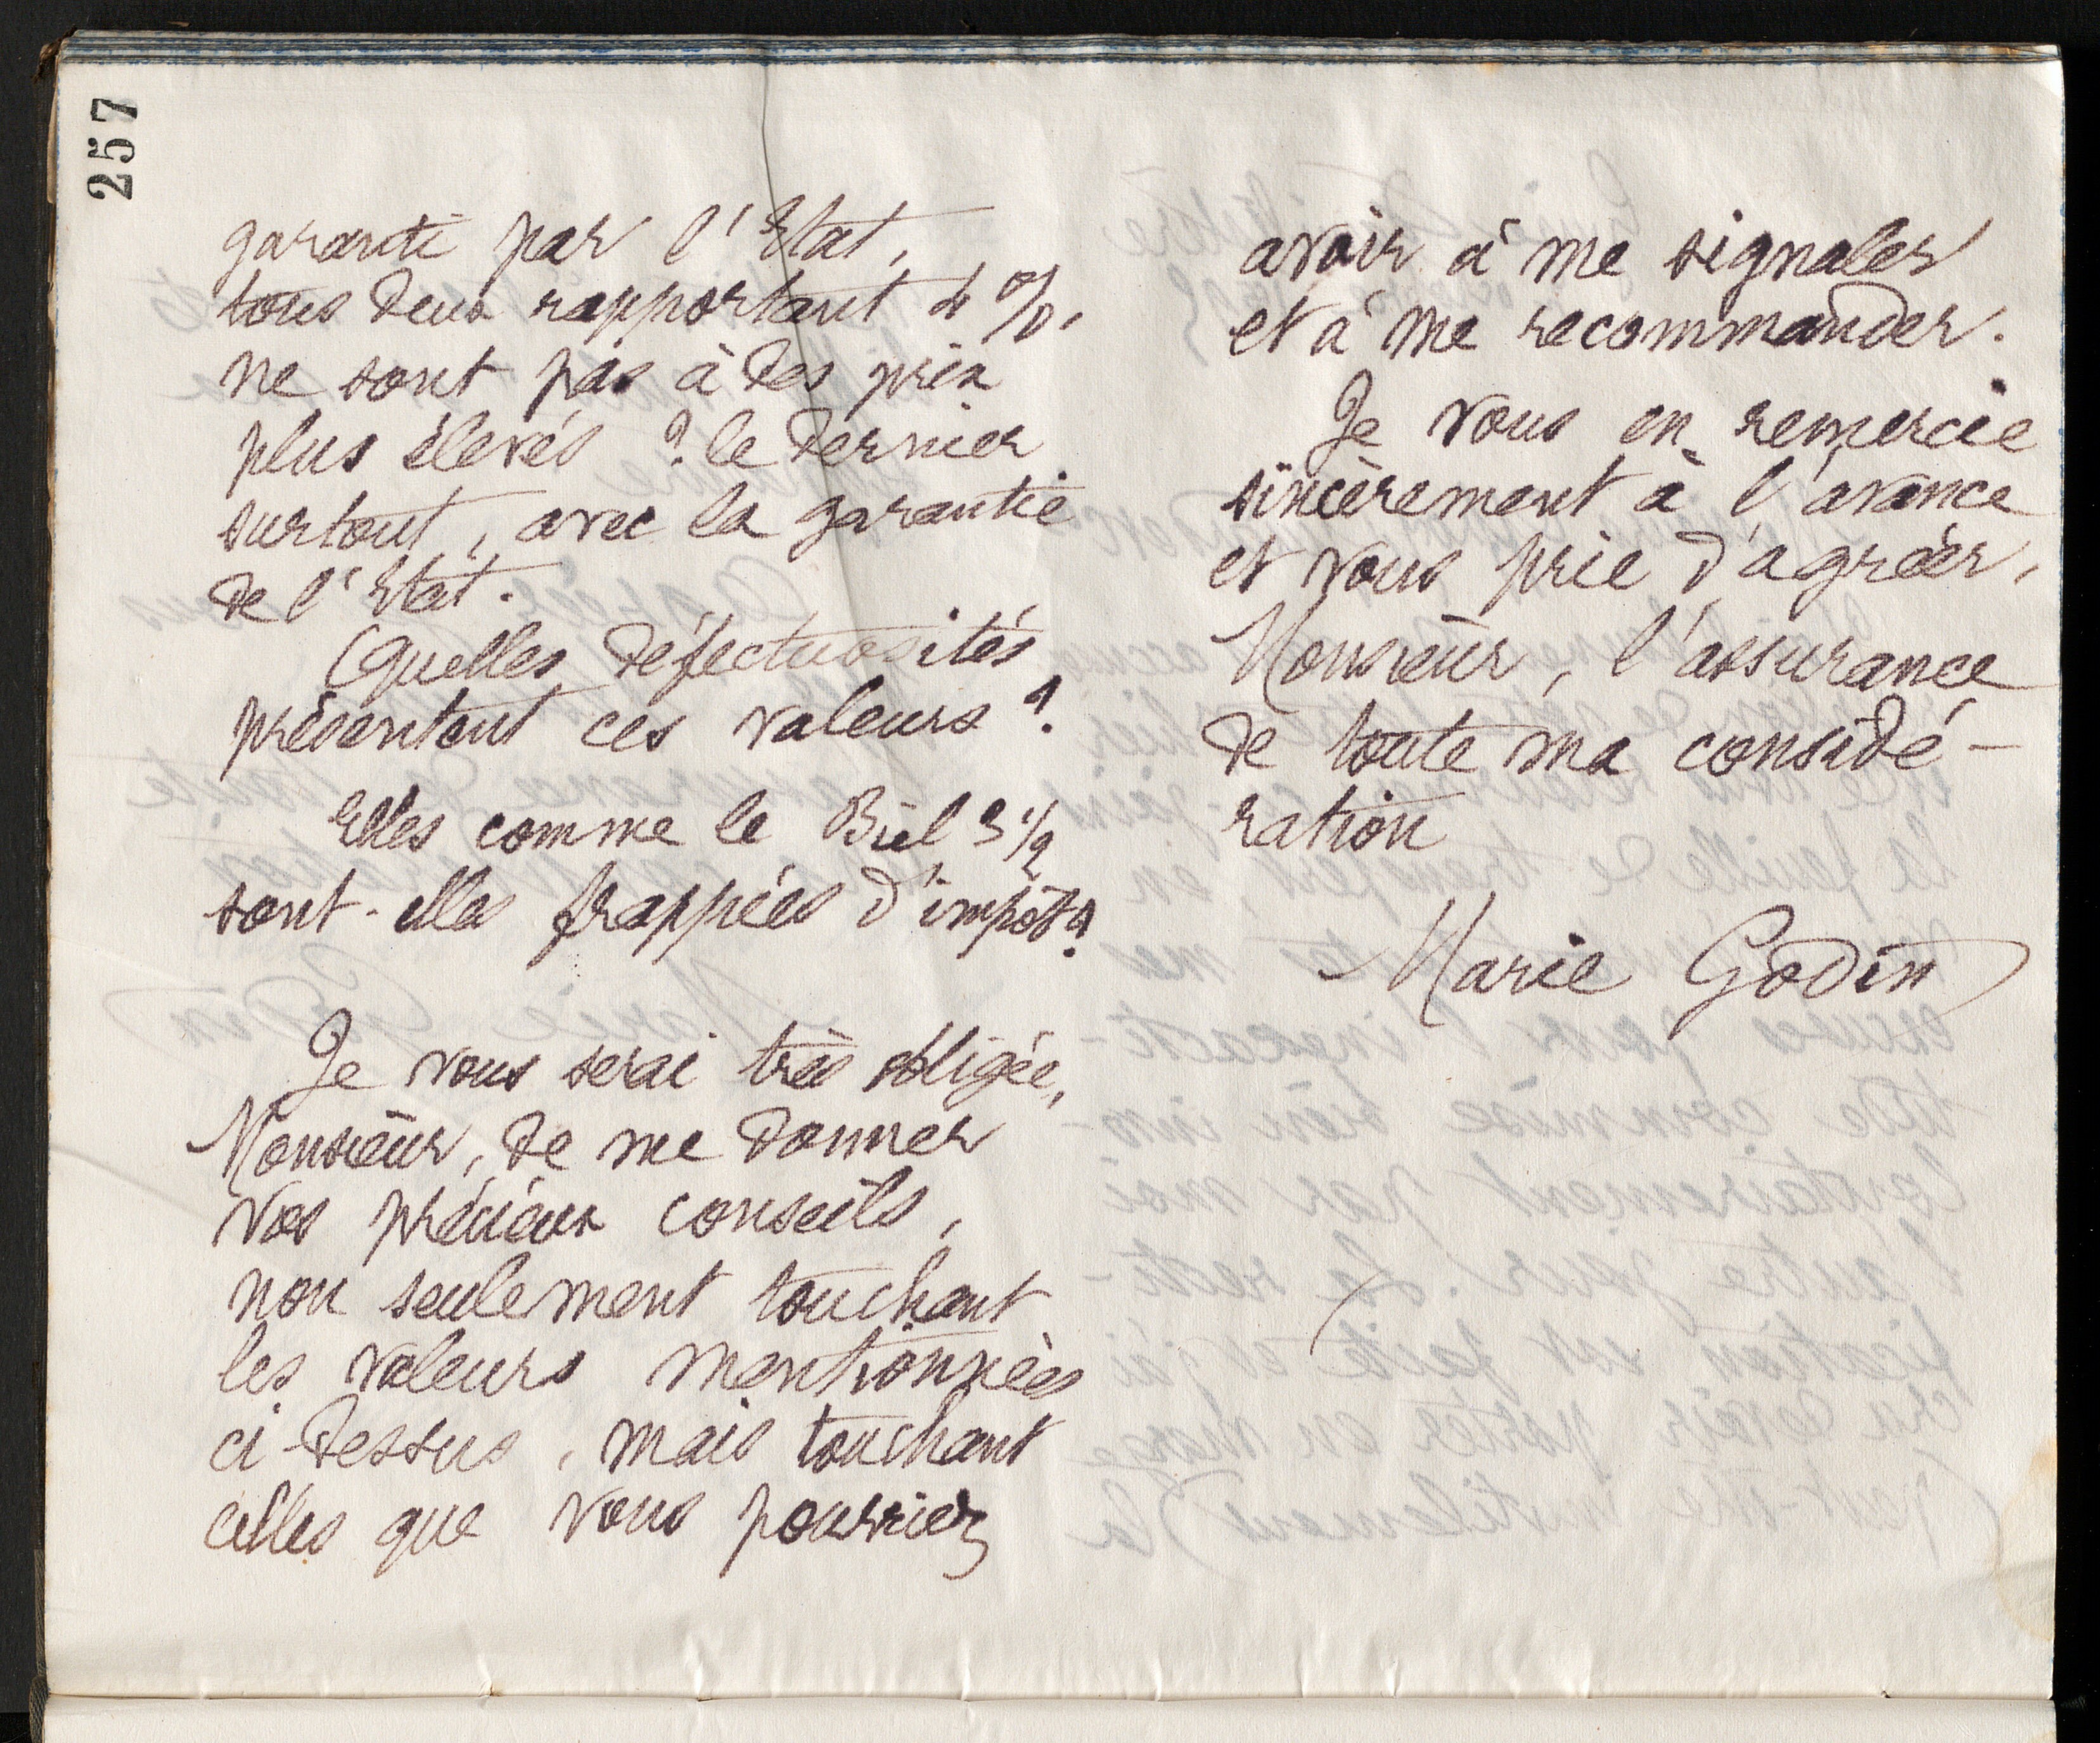 257
garanti par l'Etat,
tous deux rapportant 4 %,
ne sont pas à des prix
plus élevés ? le dernier
surtout, avec la garantie
de l'Etat.
Quelles défectuosités
présentent ces valeurs ?
Elles comme le Briel 3 1/2
sont-elles frappées d'impôt ?
Je vous serai très obligée,
Monsieur, de me donner
vos précieux conseils,
non seulement touchant
les valeurs mentionnées
ci-dessus, mais touchant
celles que vous pourriez
avoir à me signaler
et à me recommander.
Je vous en remercie
sincèrement à l'avance
et vous prie d'agréer,
Monsieur, l'assurance
de toute ma considé-
ration
Marie Godin